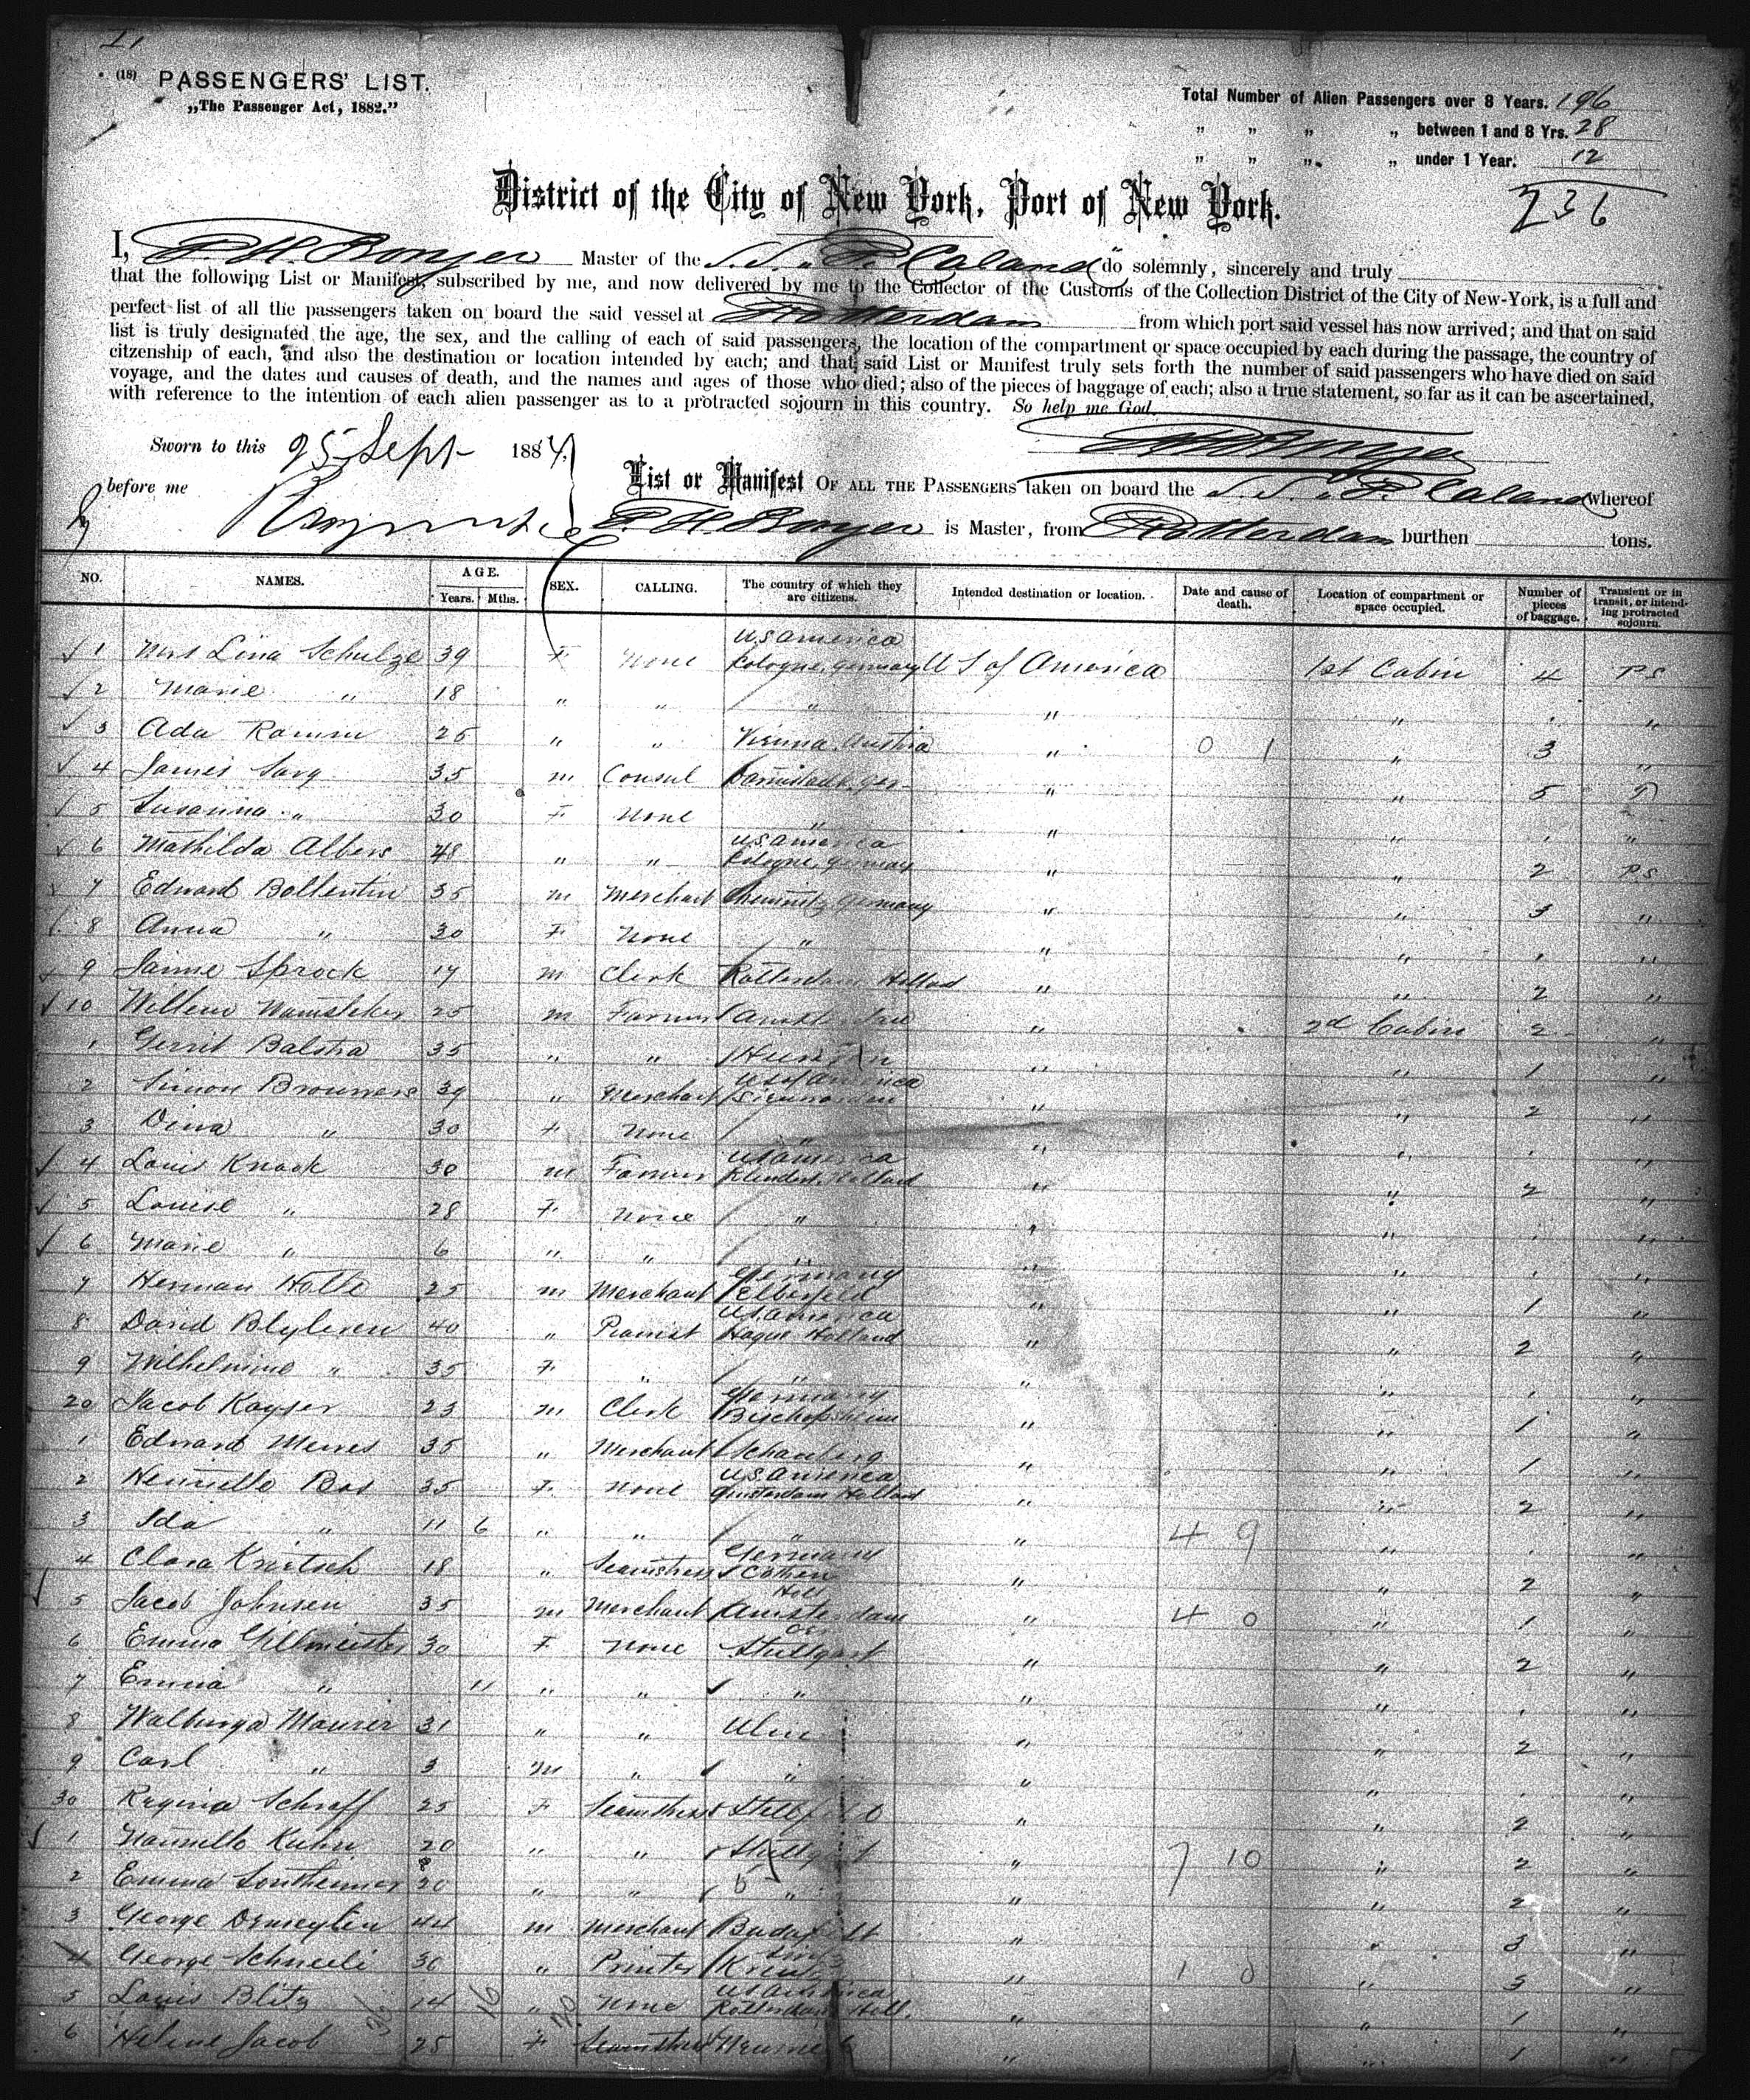 (18) PASSENGERS' LIST.
„The Passenger Act, 1882.”
Total Number of Alien Passengers over 8 Years. 196
„ „ „ „ between 1 and 8 Yrs. 28
„ „ „ „ under 1 Year. 12
236
District of the City of New York, Port of New York.
I, Master of the S.S. „P. Caland” do solemnly, sincerely and truly
that the following List or Manifest, subscribed by me, and now delivered by me to the Collector of the Customs of the Collection District of the City of New-York, is a full and
perfect list of all the passengers taken on board the said vessel at Rotterdam from which port said vessel has now arrived; and that on said
list is truly designated the age, the sex, and the calling of each of said passengers, the location of the compartment or space occupied by each during the passage, the country of
citzenship of each, and also the destination or location intended by each; and that said List or Manifest truly sets forth the number of said passengers who have died on said
voyage, and the dates and causes of death, and the names and ages of those who died; also of the pieces of baggage of each; also a true statement, so far as it can be ascertained,
with reference to the intention of each alien passenger as to a protracted sojourn in this country. So help me God.
Sworn to this 25 Sept 1884
before me
List or Manifest OF ALL THE PASSENGERS taken on board the S.S. „P. Caland whereof
is Master, from Rotterdam burthen tons.
NO. NAMES. AGE. Years. Mths. SEX. CALLING. The country of which they are citizens. Intended destination or location. Date and cause of death. Location of compartment or space occupied. Number of pieces of baggage. Transient or in transit, or intending protracted sojourn.
1 Mrs Lina Schulze 39 F None US america Cologne, germany U S of America 1st Cabin 4 PS
2 Marie „ 18 „ „ „ „ „ „
3 Ada 25 „ „ Vienna Austria „ 0 1 „ 3 „
4 James Sarg 35 m Consul Darmstadt, ger. „ „ 5
5 Susanna „ 30 F None „ „ „ „
6 Mathilda Albers 48 „ „ US america Cologne, germany „ „ 2 PS
7 Edward Bollentin 35 m Merchant Chemnitz Germany „ „ 3 „
8 Anna „ 30 F None „ „ „ „
9 Sprock 17 m Clerk Rotterdam Holland „ „ 2 „
10 Willem 25 m Farmer „ 2d Cabin 2 „
1 Gerrit Balstra 35 „ „ „ 1 „
2 Simon Brouwers 39 „ Merchant US of America „ „ 2 „
3 Dina „ 30 F None „ „ „ „
4 Louis Knook 30 m Farmer US america Holland „ „ 2 „
5 Louise „ 28 F None „ „ „ „
6 Marie „ 6 „ „ „ „ „ „
7 Herman Holle 25 m Merchant Germany Elberfeld „ „ 1 „
8 David Blyleven 40 „ Pianist US america Hague Holland „ „ 2 „
9 Wilhelmine „ 35 F „ „ „ „ „
20 Jacob Kayser 23 m Clerk Germany Bischofsheim „ „ 1 „
1 Edward Meeves 35 „ Merchant „ „ 1 „
2 Bos 35 F None US America Amsterdam Holland „ „ 2 „
3 Ida „ 11 6 „ „ „ „ 4 9 „ „
4 Clara 18 „ Seamstress Germany Cothen „ „ 2 „
5 Jacob Johnsen 35 m Merchant Holl Amsterdam „ 4 0 „ 1 „
6 Emma 30 F None Ger Stuttgart „ „ 2 „
7 Emma „ 11 „ „ „ „ „ „
8 Walburga Maurer 31 „ „ Ulm „ „ 2 „
9 Carl „ 3 m „ „ „ „ „
30 Regina Schraff 25 F Seamstress „ „ 2 „
1 Kuhn 20 „ „ Stuttgart „ 7 10 „ 2 „
2 Emma Sontheimer 20 „ „ „ „ „ 2 „
3 George 44 m Merchant Budapest „ „ 3 „
4 George Schneeli 30 „ Printer „ 1 0 „ 3 „
5 Louis Blitz 14 „ None US America Rotterdam Holl. „ „ 1 „
6 Helene Jacob 25 F Seamstress „ „ 1 „